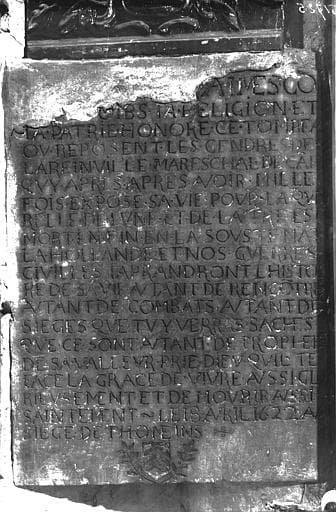 RELIGION ET
TA PATRIE HONORE CE TOMBEAV
OV REPOSENT LES CENDRES DE
LAREINVILLE MARESCHAL DE CAMP
QVY APRES APRES AVOIR MILLE
FOIS EXPOSE SA VIE POVR LA QVE
RELLE DE LVNE ET DE LAVTRE ES
MORT ENFIN EN LA SOVSTENANT
LA HOLLANDE ET NOS GVERRES
CIVILES TAPRANDRONT LHISTOI
RE DE SA VIE AVTANT DE RENCONTRE
AVTANT DE COMBATS AVTANT DE
SIEGES QVE TV Y VERRAS SACHES
QVE CE SONT AVTANT DE TROPHEE
DE SA VALLEVR PRIE DIEV QVIL TE
FACE LA GRACE DE VIVRE AVSSI GLO
RIEVSEMENT ET DE MOVRIR AVSSI
SAINTEMENT ~ LE 18 AVRIL 1622 A
SIEGE DE THONEINS